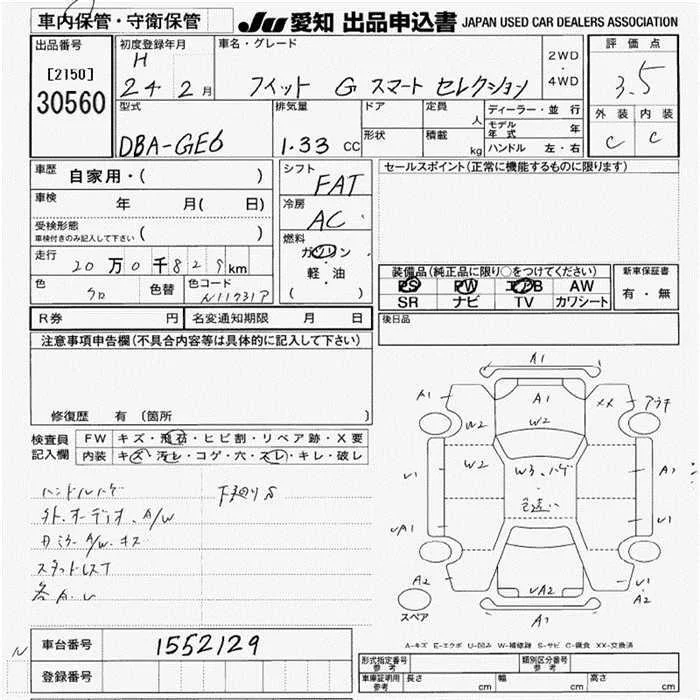 車内保管・守衛保管 JU 愛知 出品申込書 JAPAN USED CAR DEALERS ASSOCIATION
出品番号 初度登録年月 車名・グレード 2WD・4WD 評価点
[2150] H
30560 24 2月 フィット G スマート セレクション 3.5
型式 排気量 ドア 定員 人 ディーラー・並行 外装 内装
DBA-GE6 1.33 CC 形状 積載 kg モデル年式 年 C C
ハンドル 左・右
車歴 自家用・( ) シフト FAT セールスポイント(正常に機能するものに限ります)
車検 年 月( 日) 冷房 AC
受検形態 ( )
車検付きのみ記入して下さい
燃料 ガソリン
走行 20万0千829km 軽・油
( )
装備品(純正品に限り○をつけてください) 新車保証書
色 クロ 色替 色コード N11731P PS PW エアB AW 有・無
SR ナビ TV カワシート
R券 円 名変通知期限 月 日 後日品
注意事項申告欄(不具合内容等は具体的に記入して下さい)
修復歴 有(箇所 )
検査員記入欄 FW キズ・飛石・ヒビ割・リペア跡・X要
内装 キズ・汚レ・コゲ・穴・スレ・キレ・破レ
ハンドルハゲ 下廻りS
外.オーディオ.A/W
カミラーA/W.キズ
スタッドレスT
各A.U
A1
A1 A1 XX アラキ
W2 W2
W2 W3.ハゲ
色違い
V1 A2
UA1 V1
A2 UA2 V1
A2
スペア A1
A-キズ E-エクボ U-凹み W-補修跡 S-サビ C-腐食 XX-交換済
N 車台番号 1552129
登録番号
形式指定番号参考 類別区分番号参考
車庫証明用参考 長さ cm 幅 cm 高さ cm